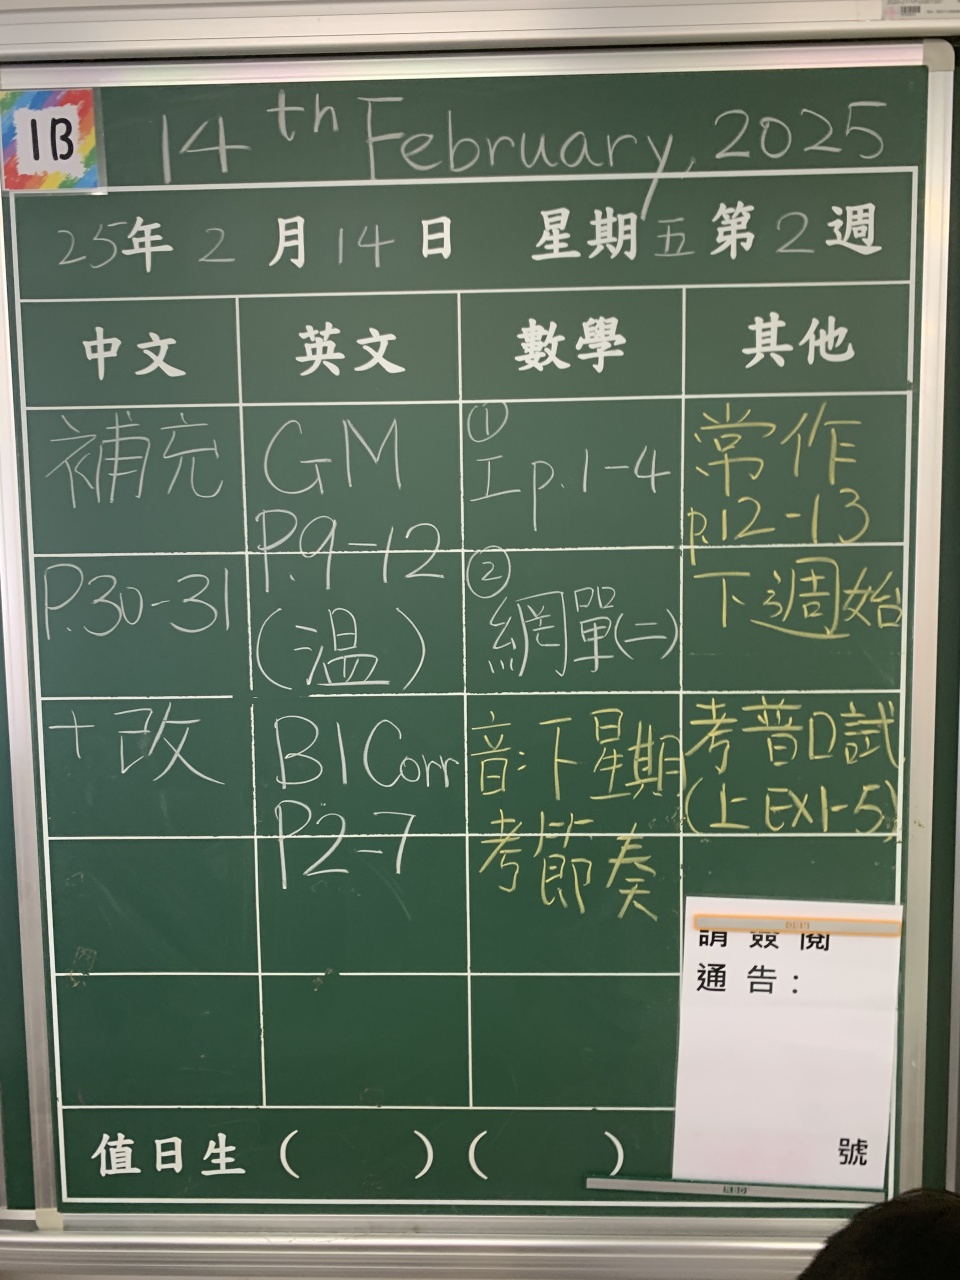 1B
14th February, 2025
25年2月14日 星期五第2週
中文 英文 數學 其他
補充
P.30-31
+改
GM
P.9-12
(温)
B1Corr
P2-7
①
工p.1-4
②
網單(二)
音:下星期
考節奏
常作
p.12-13
下週始
考普口試
(上EX1-5)
請簽閱
通告：
號
值日生( )( )